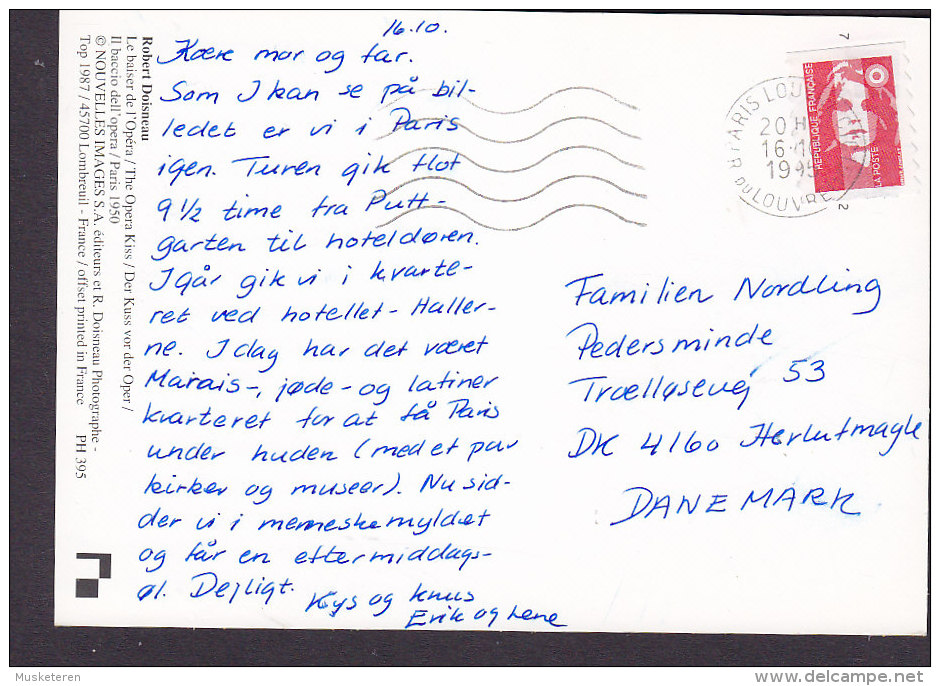 16.10.
Kære mor og far.
Som I kan se på bil-
ledet er vi i Paris
igen. Turen gik flot
9 1/2 time fra Putt-
garten til hoteldøren.
Igår gik vi i kvarte-
ret ved hotellet - Haller-
ne. Idag har det været
Marais-, jøde- og latiner
kvarteret for at få Paris
under huden (med et par
kirker og museer). Nu sid-
der vi i menneskemyldet
og får en eftermiddags-
øl. Dejligt.
Kys og knus
Erik og Lene
Familien Nordling
Pedersminde
Trælløsevej 53
DK 4160 Herlufmagle
DANEMARK
PARIS LOUVRE
20 H
16-1
19 95
R. DU LOUVRE
RÉPUBLIQUE FRANÇAISE
LA POSTE
7
2
Robert Doisneau
Le baiser de l'Opéra / The Opera Kiss / Der Kuss vor der Oper /
Il baccio dell'opera / Paris 1950
© NOUVELLES IMAGES S.A. éditeurs et R. Doisneau Photographe -
Top 1987 / 45700 Lombreuil - France / offset printed in France PH 395
Musketeren
delcampe.net